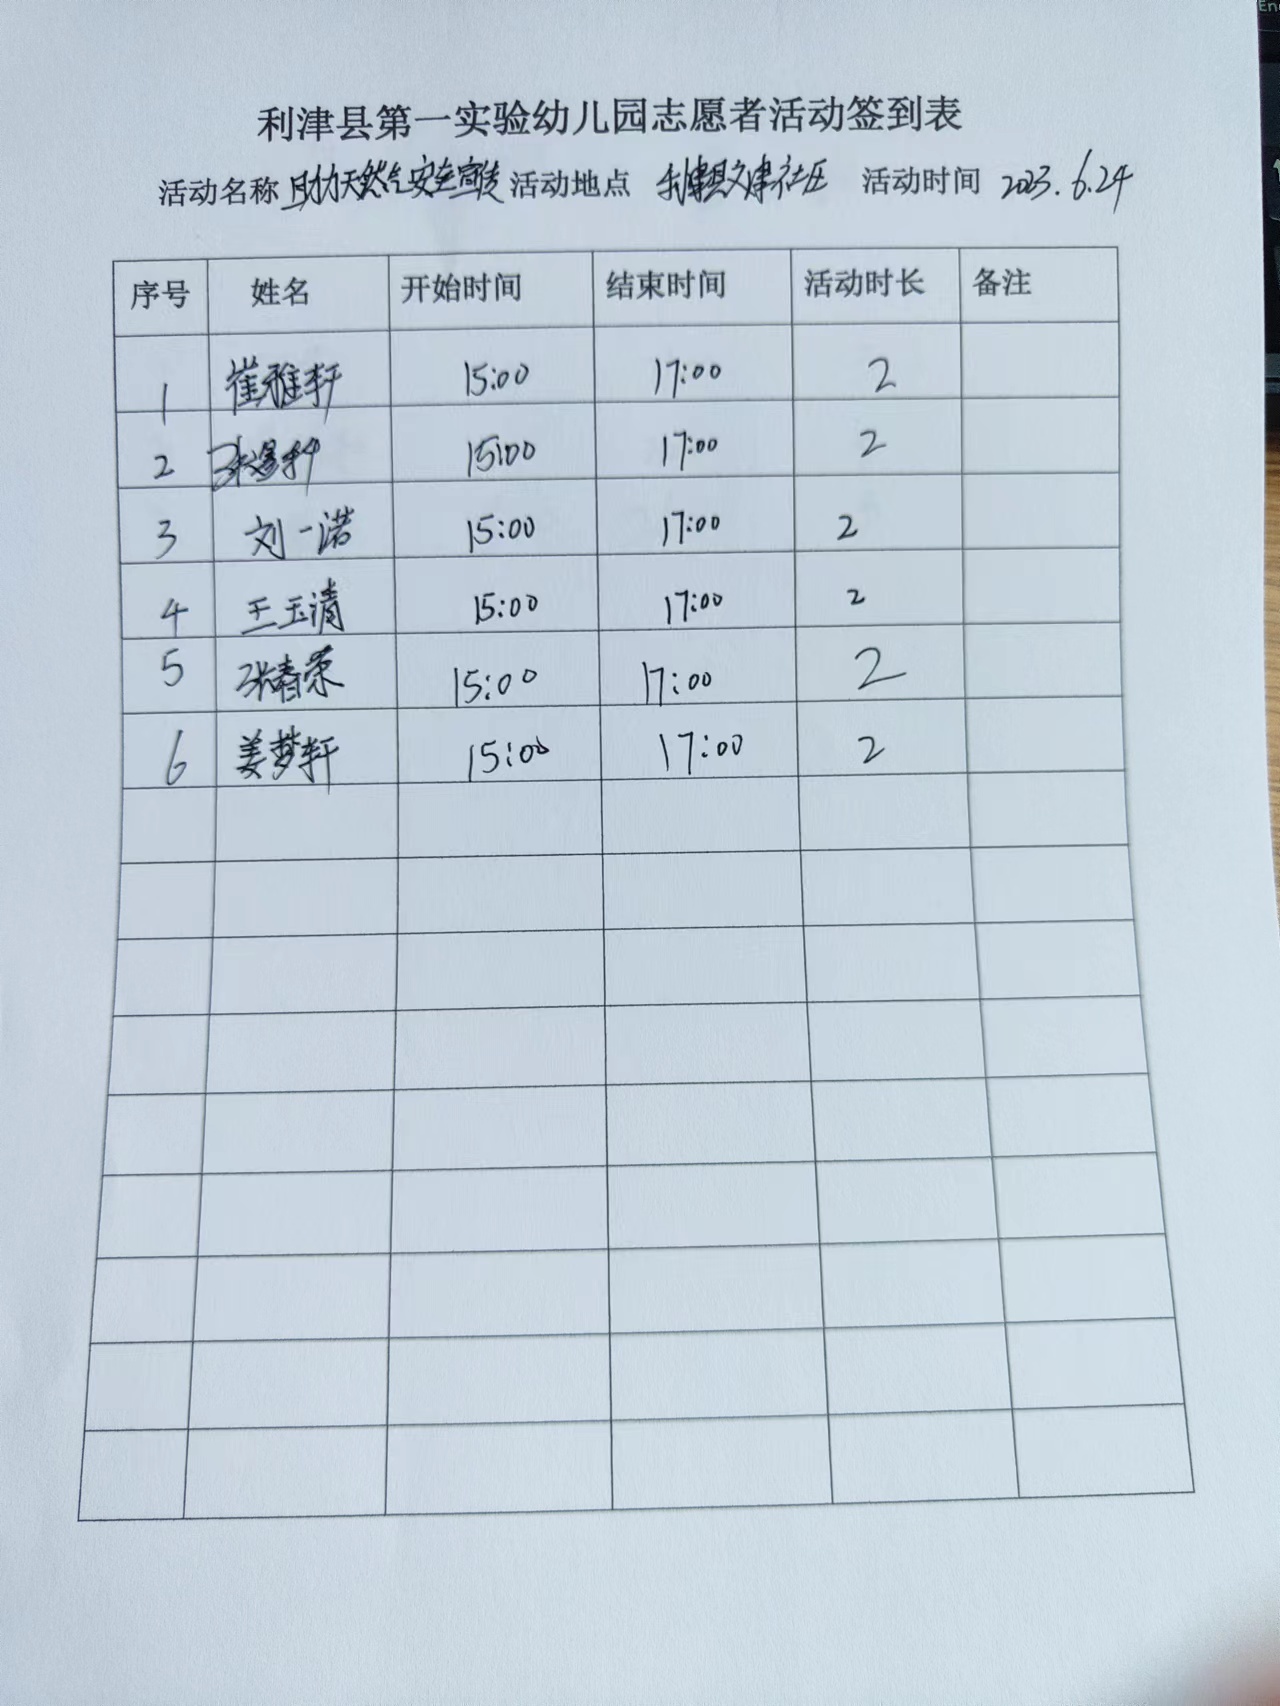 利津县第一实验幼儿园志愿者活动签到表
活动名称 助力天然气安全宣传 活动地点 利津县文津社区 活动时间 2023.6.24
序号 姓名 开始时间 结束时间 活动时长 备注
1 崔雅轩 15:00 17:00 2
2 15:00 17:00 2
3 刘一诺 15:00 17:00 2
4 王玉清 15:00 17:00 2
5 张春荣 15:00 17:00 2
6 姜梦轩 15:00 17:00 2